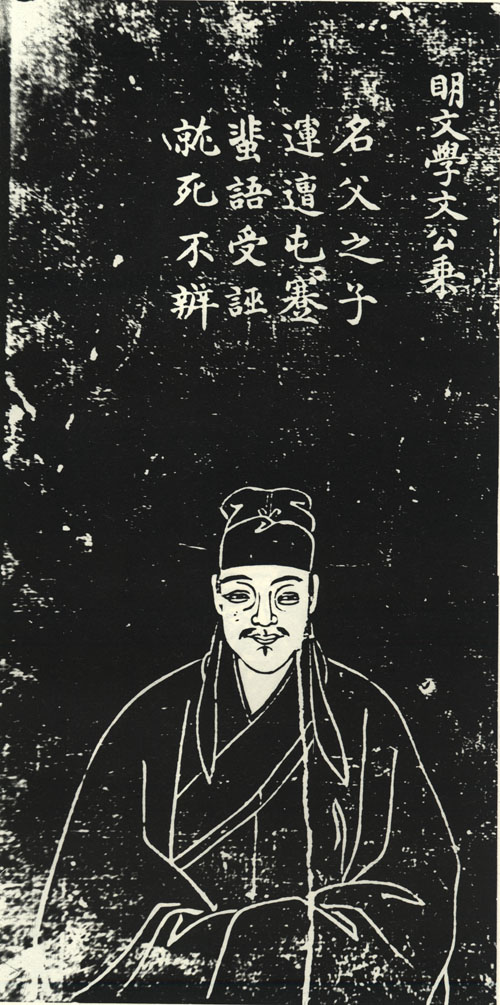 明文學文公乗
名父之子
運遭屯蹇
蜚語受誣
就死不辨